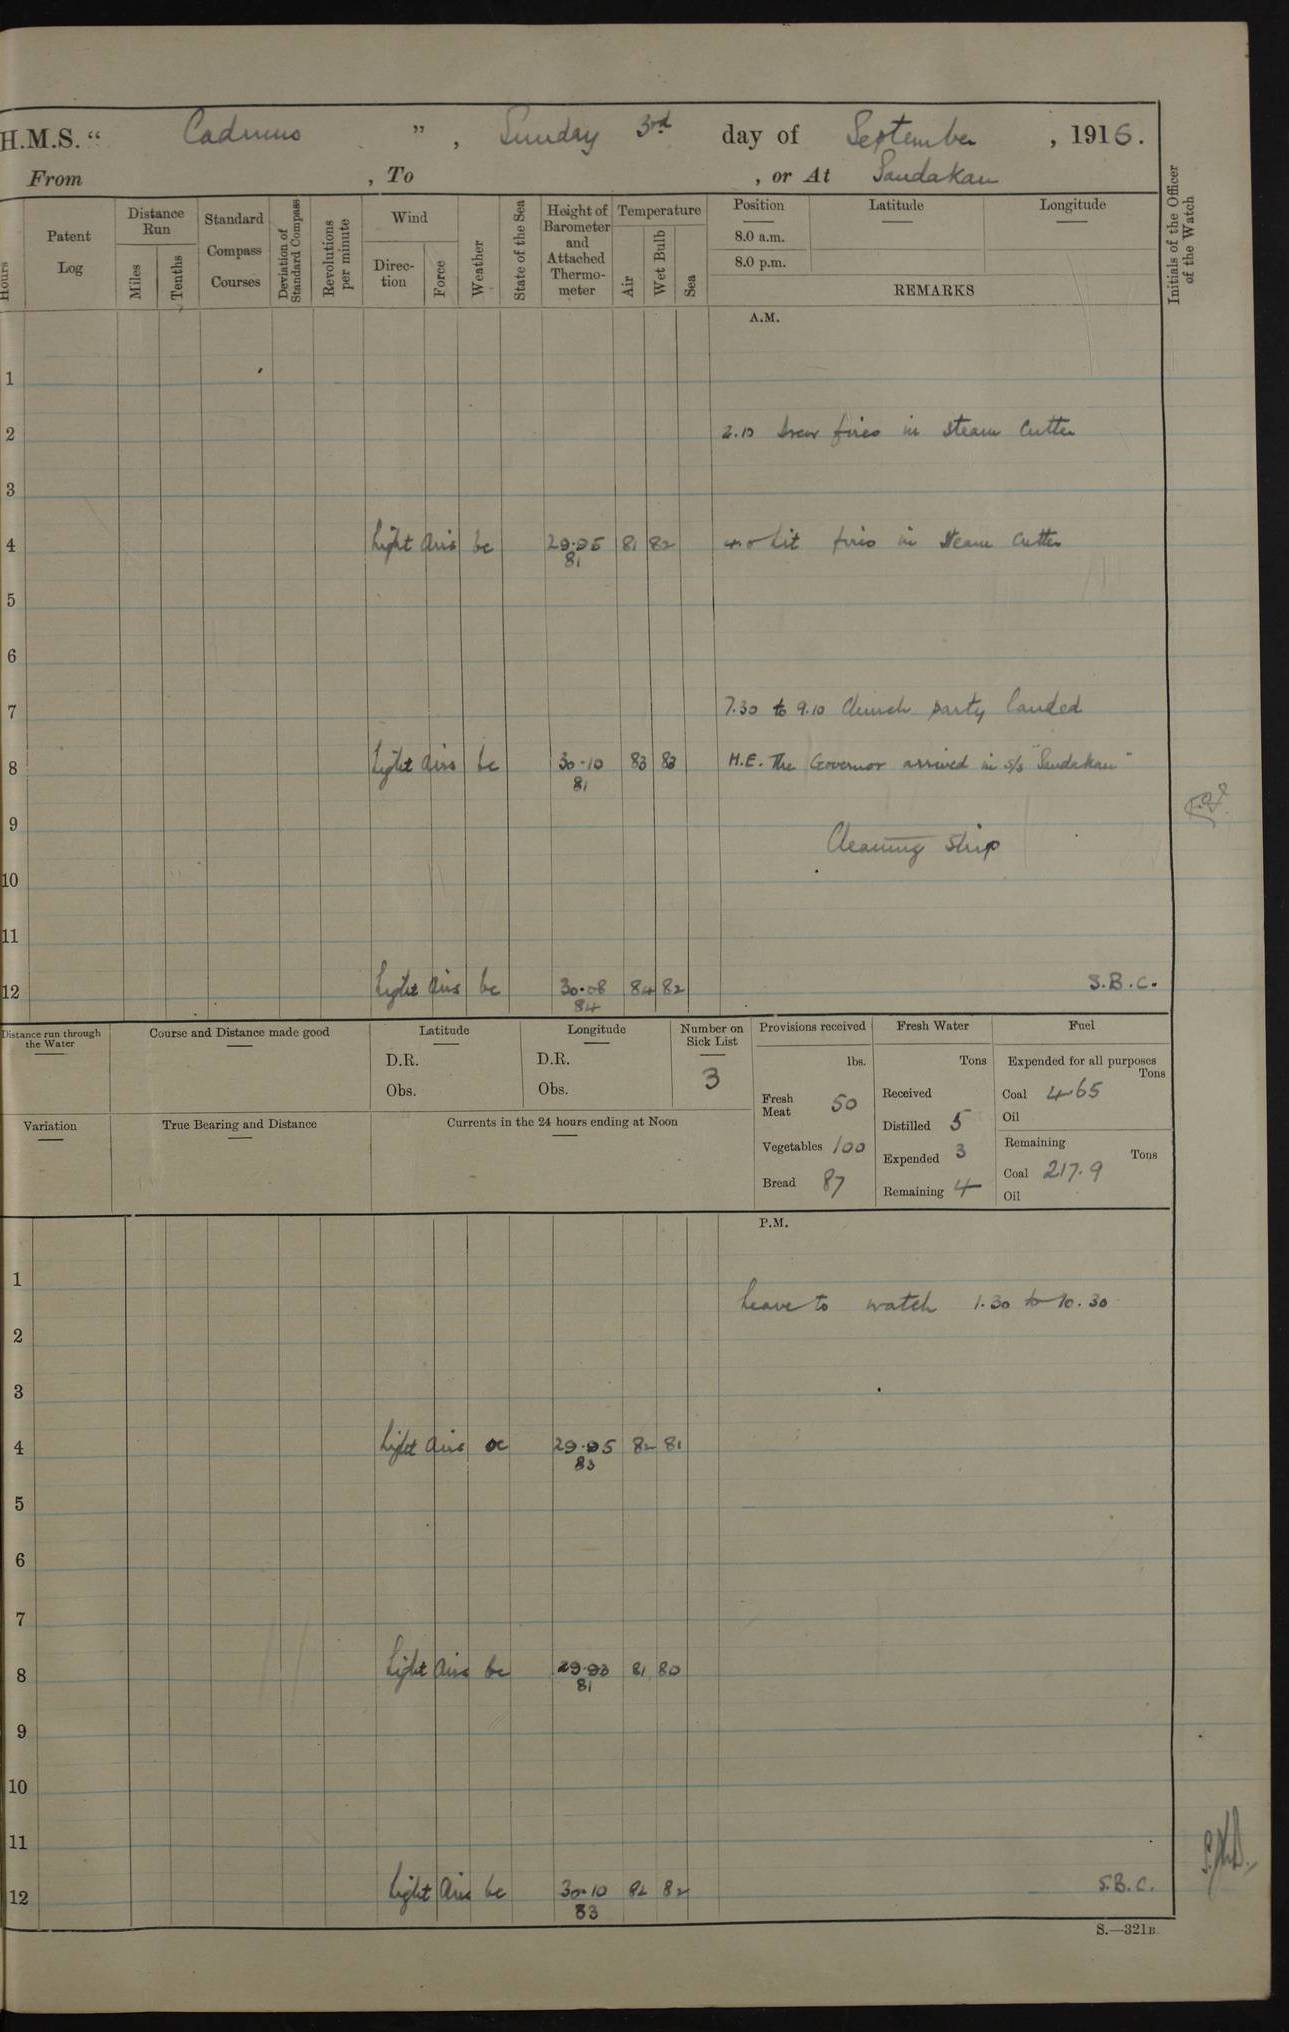 H.M.S. “ Cadmus ” , Sunday 3rd day of September , 1916.
From , To , or At Sandakan
Hours
Patent Log
Distance Run
Miles
Tenths
Standard Compass Courses
Deviation of Standard Compass
Revolutions per minute
Wind
Direction
Force
Weather
State of the Sea
Height of Barometer and Attached Thermometer
Temperature
Air
Wet Bulb
Sea
Position
8.0 a.m.
8.0 p.m.
Latitude
Longitude
REMARKS
Initials of the Officer of the Watch
A.M.
1
2 2.10 Drew fires in Steam Cutter
3
4 Light Airs bc 29.95 81 82 Lit fires in Steam Cutter
81
5
6
7 7.30 to 9.10 Church party landed
8 Light Airs bc 30.10 83 83 H.E. The Governor arrived in S/S "Sandakan"
81
9 Cleaning Ship
10
11
12 Light Airs bc 30.08 84 82 S.B.C.
84
Distance run through the Water
Course and Distance made good
Latitude
D.R.
Obs.
Longitude
D.R.
Obs.
Number on Sick List
3
Provisions received
lbs.
Fresh Meat 50
Vegetables 100
Bread 87
Fresh Water
Tons
Received
Distilled 5
Expended 3
Remaining 4
Fuel
Expended for all purposes
Tons
Coal 4.65
Oil
Remaining
Tons
Coal 217.9
Oil
Variation
True Bearing and Distance
Currents in the 24 hours ending at Noon
P.M.
1
Leave to watch 1.30 to 10.30
2
3
4 Light Airs 29.95 82 81
83
5
6
7
8 Light Airs bc 29.98 81 80
81
9
10
11
12 Light Airs bc 30.10 82 82 S.B.C.
83
S.—321B.